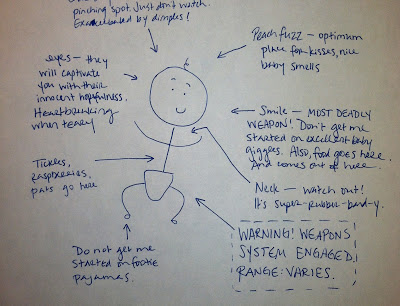 pinching spot. Just don't watch.
Exacerbated by dimples!
Peach fuzz – optimum
place for kisses, nice
baby smells
eyes – they
will captivate
you with their
innocent hopefulness.
Heartbreaking
when teary
Smile – MOST DEADLY
WEAPON! Don't get me
started on excellent baby
giggles. Also, food goes here.
And comes out of here.
Tickles,
raspberries,
pats go here
Neck – watch out!
It's super-rubber-band-y.
Do not get me
started on footie
pajamas.
WARNING! WEAPONS
SYSTEM ENGAGED.
RANGE: VARIES.